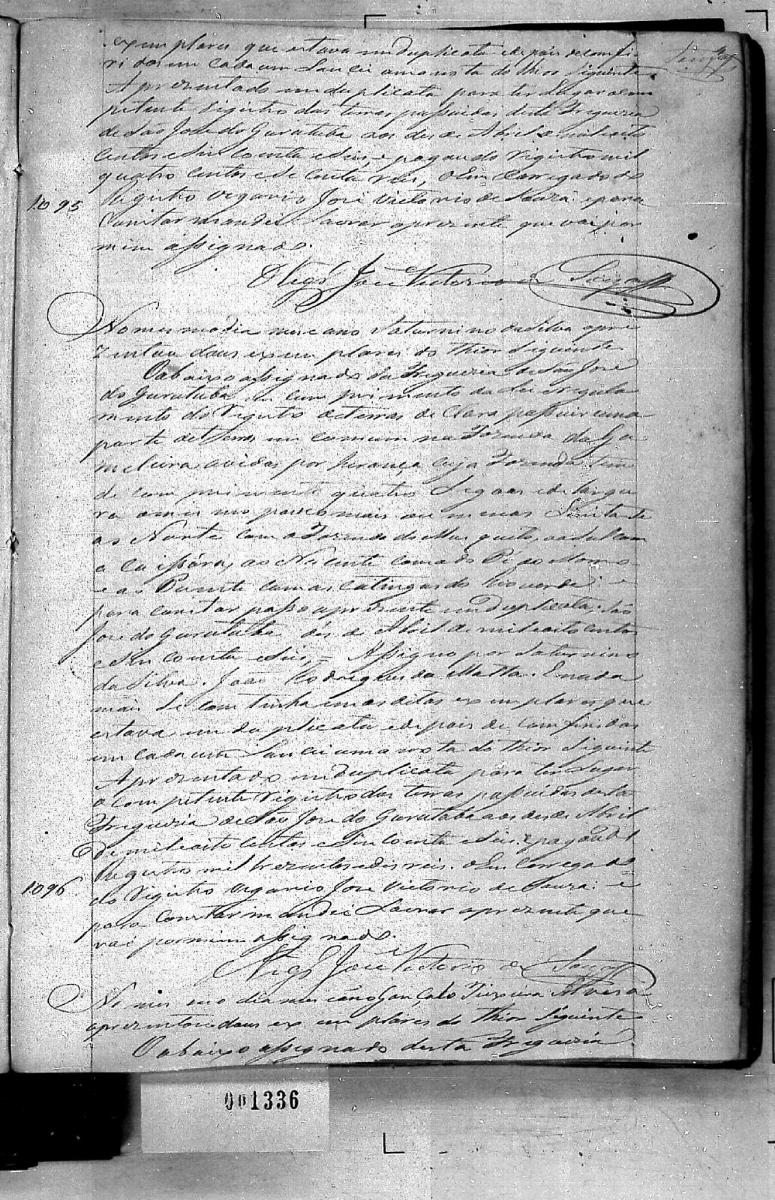 exemplares que estava em duplicata e depois de comfi
ridos em cada um Lancei uma nota do thior Siguinte
Aprezentado em duplicata para ter Lugar o com
petente Rigistro das terras pussuidas desta Freguezia
de São Jose do Gurutuba aos des de Abril de mil e oito
centos e Sin coenta e Seis e pagou do Rigistro mil
quatro centos e secenta reis, o Em Carregado do
1095
Rigistro Vegario José Victorio de Souza e para
Constar mandei Lavrar aprezente que vai por
mim assignado.
O Vigº José Victorio de Souza
No mesmo dia mes e ano Saturnino da Silva apre
zentou dous exemplares do thior Seguinte
O abaixo assignado da Freguezia de São José
do Gurutuba em cumprimento da Lei e regula
mento do Rigistro de terras declara pussuir uma
parte de terras em comum na Fazenda da Ga
meleira avidas por herança cuja Fazenda tem
de comprimento quatro Legoas e de Largu
ra o mesmo pouco mais ou menos Limita-se
ao Norte com a Fazenda do Mus quito, ao Sul com
a Caipóra, ao Nacente com a do Pé do Morro
e ao Puente com as Catingas do Rio verde: e
para constar passo aprezente em duplicata. São
José do Gurutuba dés de Abril de mil e oito centos
e Sin coenta e Seis = Assigno por Saturnino
da Silva. João Rodrigues da Matta. E nada
mais Se continha em as ditas exemplares que
estava em duplicata e depois de comfiridos
em cada um Lancei uma nota do thior Siguinte
Aprezentado em duplicata para ter Lugar
o competente Rigistro das terras pussuidas desta
Freguezia de São Jose do Gurutuba aos des de Abril
de mil e oito centos e Sin coenta e Seis, e pagou do
Rigistro mil trezentos e dis reis. o Em Carregado
1096
do Rigistro Vegario José Victorio de Souza: e
para Constar mandei Lavrar aprezente que
vai por mim assignado.
O Vigº José Victorio de Souza
No mesmo dia mes e ano Gonçalo Teixeira
aprezentou dous exemplares do thior Seguinte
O abaixo assignado desta Freguezia
001336